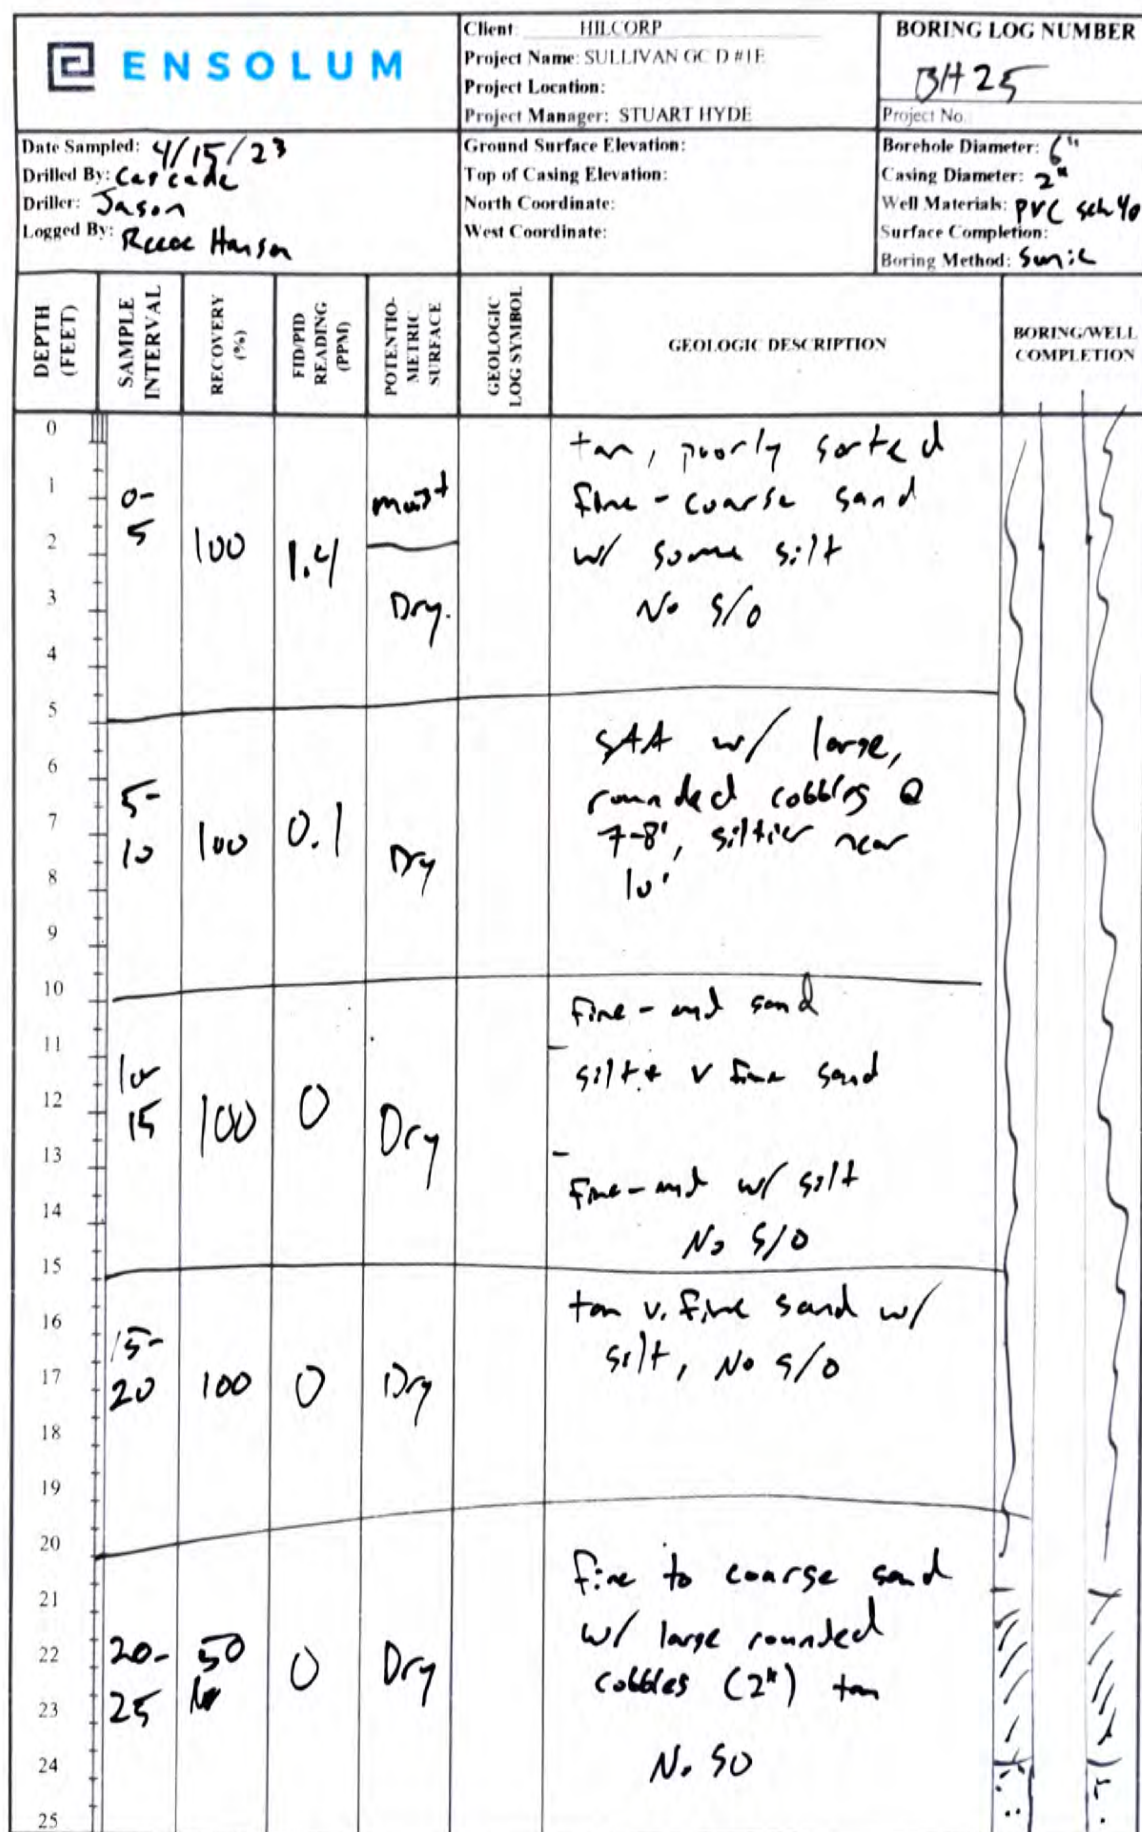 ENSOLUM
Client: HILCORP
Project Name: SULLIVAN GC D #1E
Project Location:
Project Manager: STUART HYDE
BORING LOG NUMBER
BH25
Project No.
Date Sampled: 4/15/23
Drilled By: Cascade
Driller: Jason
Logged By: Reece Hanson
Ground Surface Elevation:
Top of Casing Elevation:
North Coordinate:
West Coordinate:
Borehole Diameter: 6"
Casing Diameter: 2"
Well Materials: PVC sch 40
Surface Completion:
Boring Method: Sonic
DEPTH (FEET)
SAMPLE INTERVAL
RECOVERY (%)
FID/PID READING (PPM)
POTENTIO-METRIC SURFACE
GEOLOGIC LOG SYMBOL
GEOLOGIC DESCRIPTION
BORING/WELL COMPLETION
0
1
2
3
4
0-
5
100
1.4
moist
Dry.
tan, poorly sorted
fine - coarse sand
w/ some silt
No S/O
5
6
7
8
9
5-
10
100
0.1
Dry
SAA w/ large,
rounded cobbles @
7-8', siltier near
10'
10
11
12
13
14
10-
15
100
0
Dry
fine - md sand
silt + v fine sand
fine - md w/ silt
No S/O
15
16
17
18
19
15-
20
100
0
Dry
tan v. fine sand w/
silt, No S/O
20
21
22
23
24
25
20-
25
50
0
Dry
fine to coarse sand
w/ large rounded
cobbles (2") tan
No SO